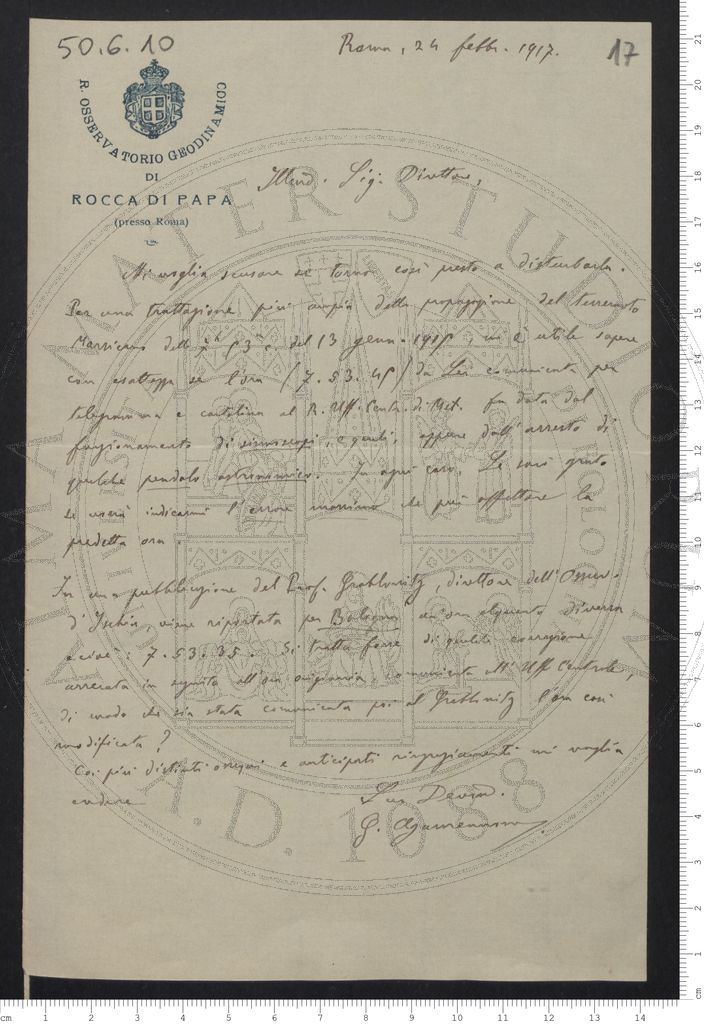 50.6.10
Roma, 24 febbr. 1917.
17
R. OSSERVATORIO GEODINAMICO
DI
ROCCA DI PAPA
(presso Roma)
Illmo. Sig. Direttore,
Mi voglia scusare se torno così presto a disturbarla.
Per una trattazione più ampia della propagazione del terremoto
Marsicano delle 7h 53m c. del 13 genn. 1915, mi è utile sapere
con esattezza se l'ora (7.53.45) da Lei comunicata per
telegramma e cartolina al R. Uff. Centr. di Met. fu data dal
funzionamento di sismoscopi, e quali, oppure dall'arresto di
qualche pendolo astronomico. In ogni caso, Le sarò grato
se vorrà indicarmi l'errore massimo che può affettare la
predetta ora.
In una pubblicazione del Prof. Grablovitz, direttore dell'Osserv.
d'Ischia, viene riportata per Bologna un'ora alquanto diversa
e cioè: 7.53.35. Si tratta forse di qualche correzione
arrecata in seguito all'ora originaria, comunicata all'Uff. Centrale,
di modo che sia stata comunicata poi al Grablovitz l'ora così
modificata?
Coi più distinti ossequi e anticipati ringraziamenti mi voglia
credere
Suo Devmo.
G. Agamennone
ALMA MATER STUDIORUM
A.D. 1088